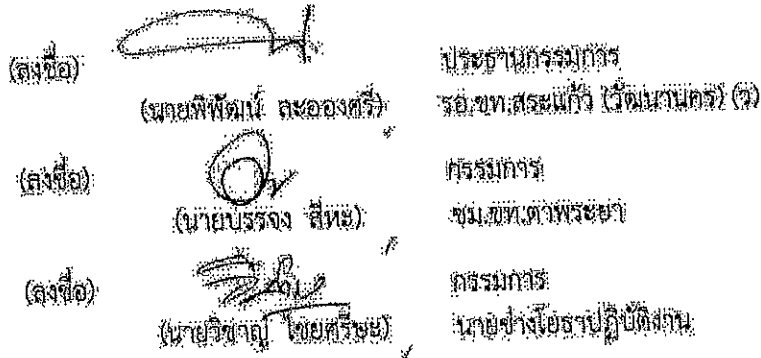 (ลงชื่อ) ประธานกรรมการ
(นายพิพัฒน์ ละอองศรี) รอ.ขท.สระแก้ว (วัฒนานคร) (ว)
(ลงชื่อ) กรรมการ
(นายบรรจง สีหะ) ชม.ขท.ตาพระยา
(ลงชื่อ) กรรมการ
(นายวิชาญ ไชยศรีษะ) นายช่างโยธาปฏิบัติงาน